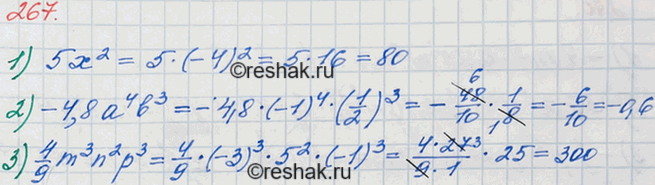 267.
1) 5x² = 5·(-4)² = 5·16 = 80
©reshak.ru
2) -4,8a⁴b³ = -4,8·(-1)⁴·(1/2)³ = -48/10·1/8 = -6/10 = -0,6
6
1
3) 4/9m³n²p³ = 4/9·(-3)³·5²·(-1)³ = 4·27³/9·1·25 = 300
©reshak.ru